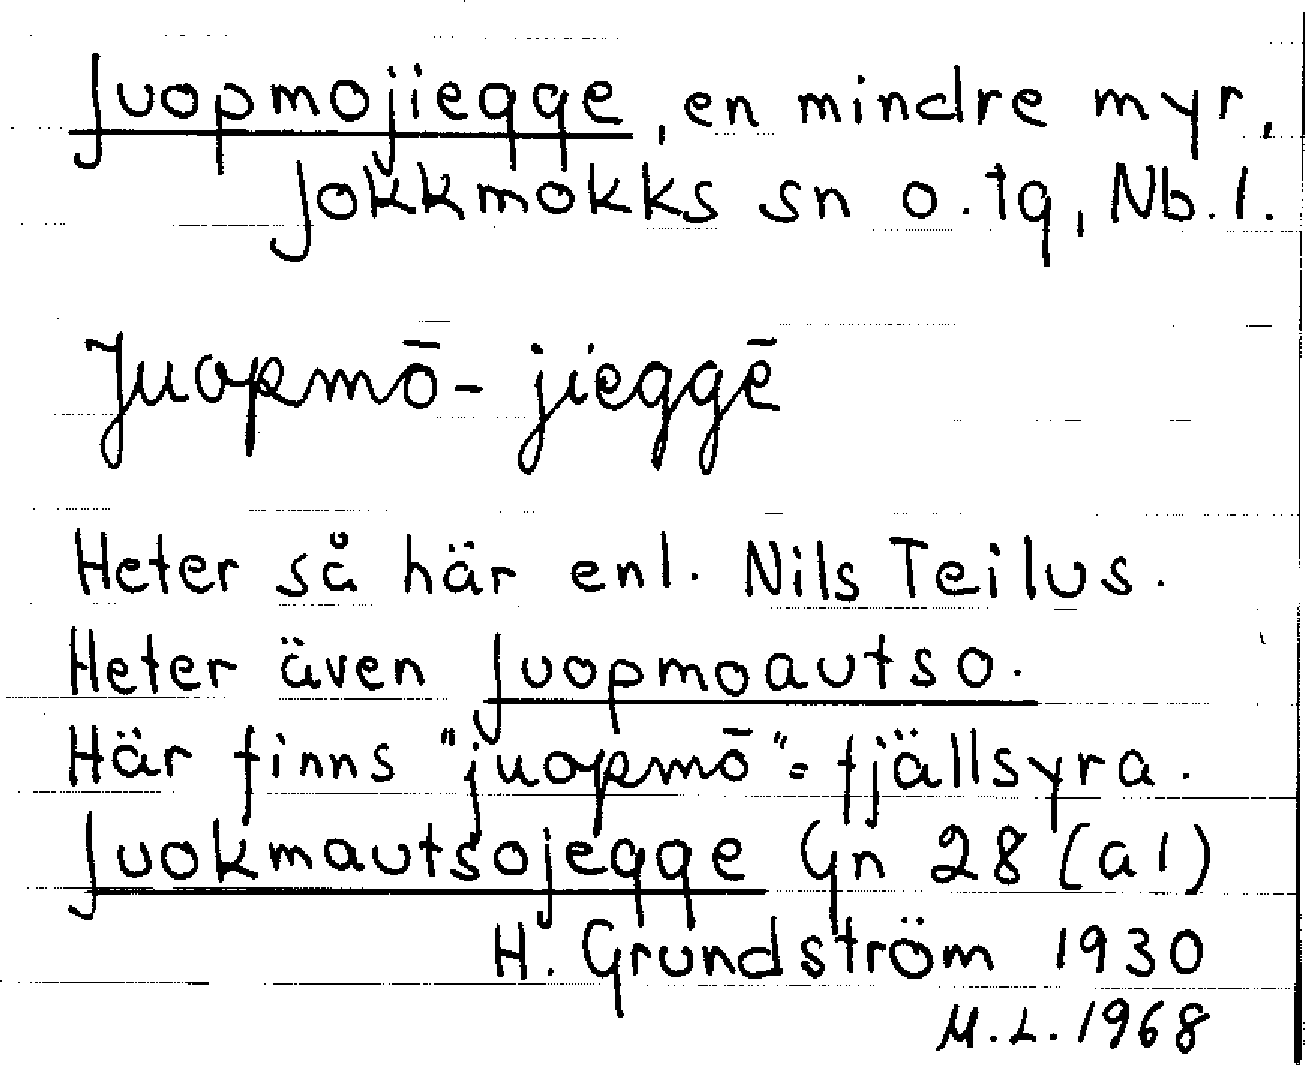 Juopmojiegge, en mindre myr,
Jokkmokks sn o. tg, Nb. l.
Juopmō- jieggē
Heter så här enl. Nils Teilus.
Heter även Juopmoautso.
Här finns "juopmō" = fjällsyra.
Juokmautsojegge Gn 28 (a1)
H. Grundström 1930
M.L. 1968